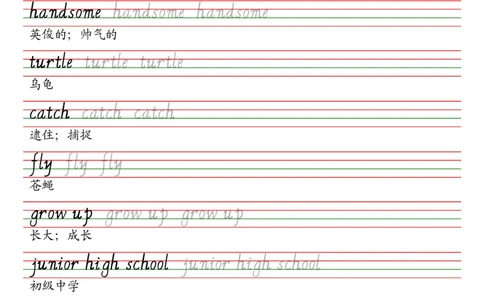 handsome handsome handsome
英俊的；帅气的
turtle turtle turtle
乌龟
catch catch catch
逮住；捕捉
fly fly fly
苍蝇
grow up grow up grow up
长大；成长
junior high school junior high school
初级中学